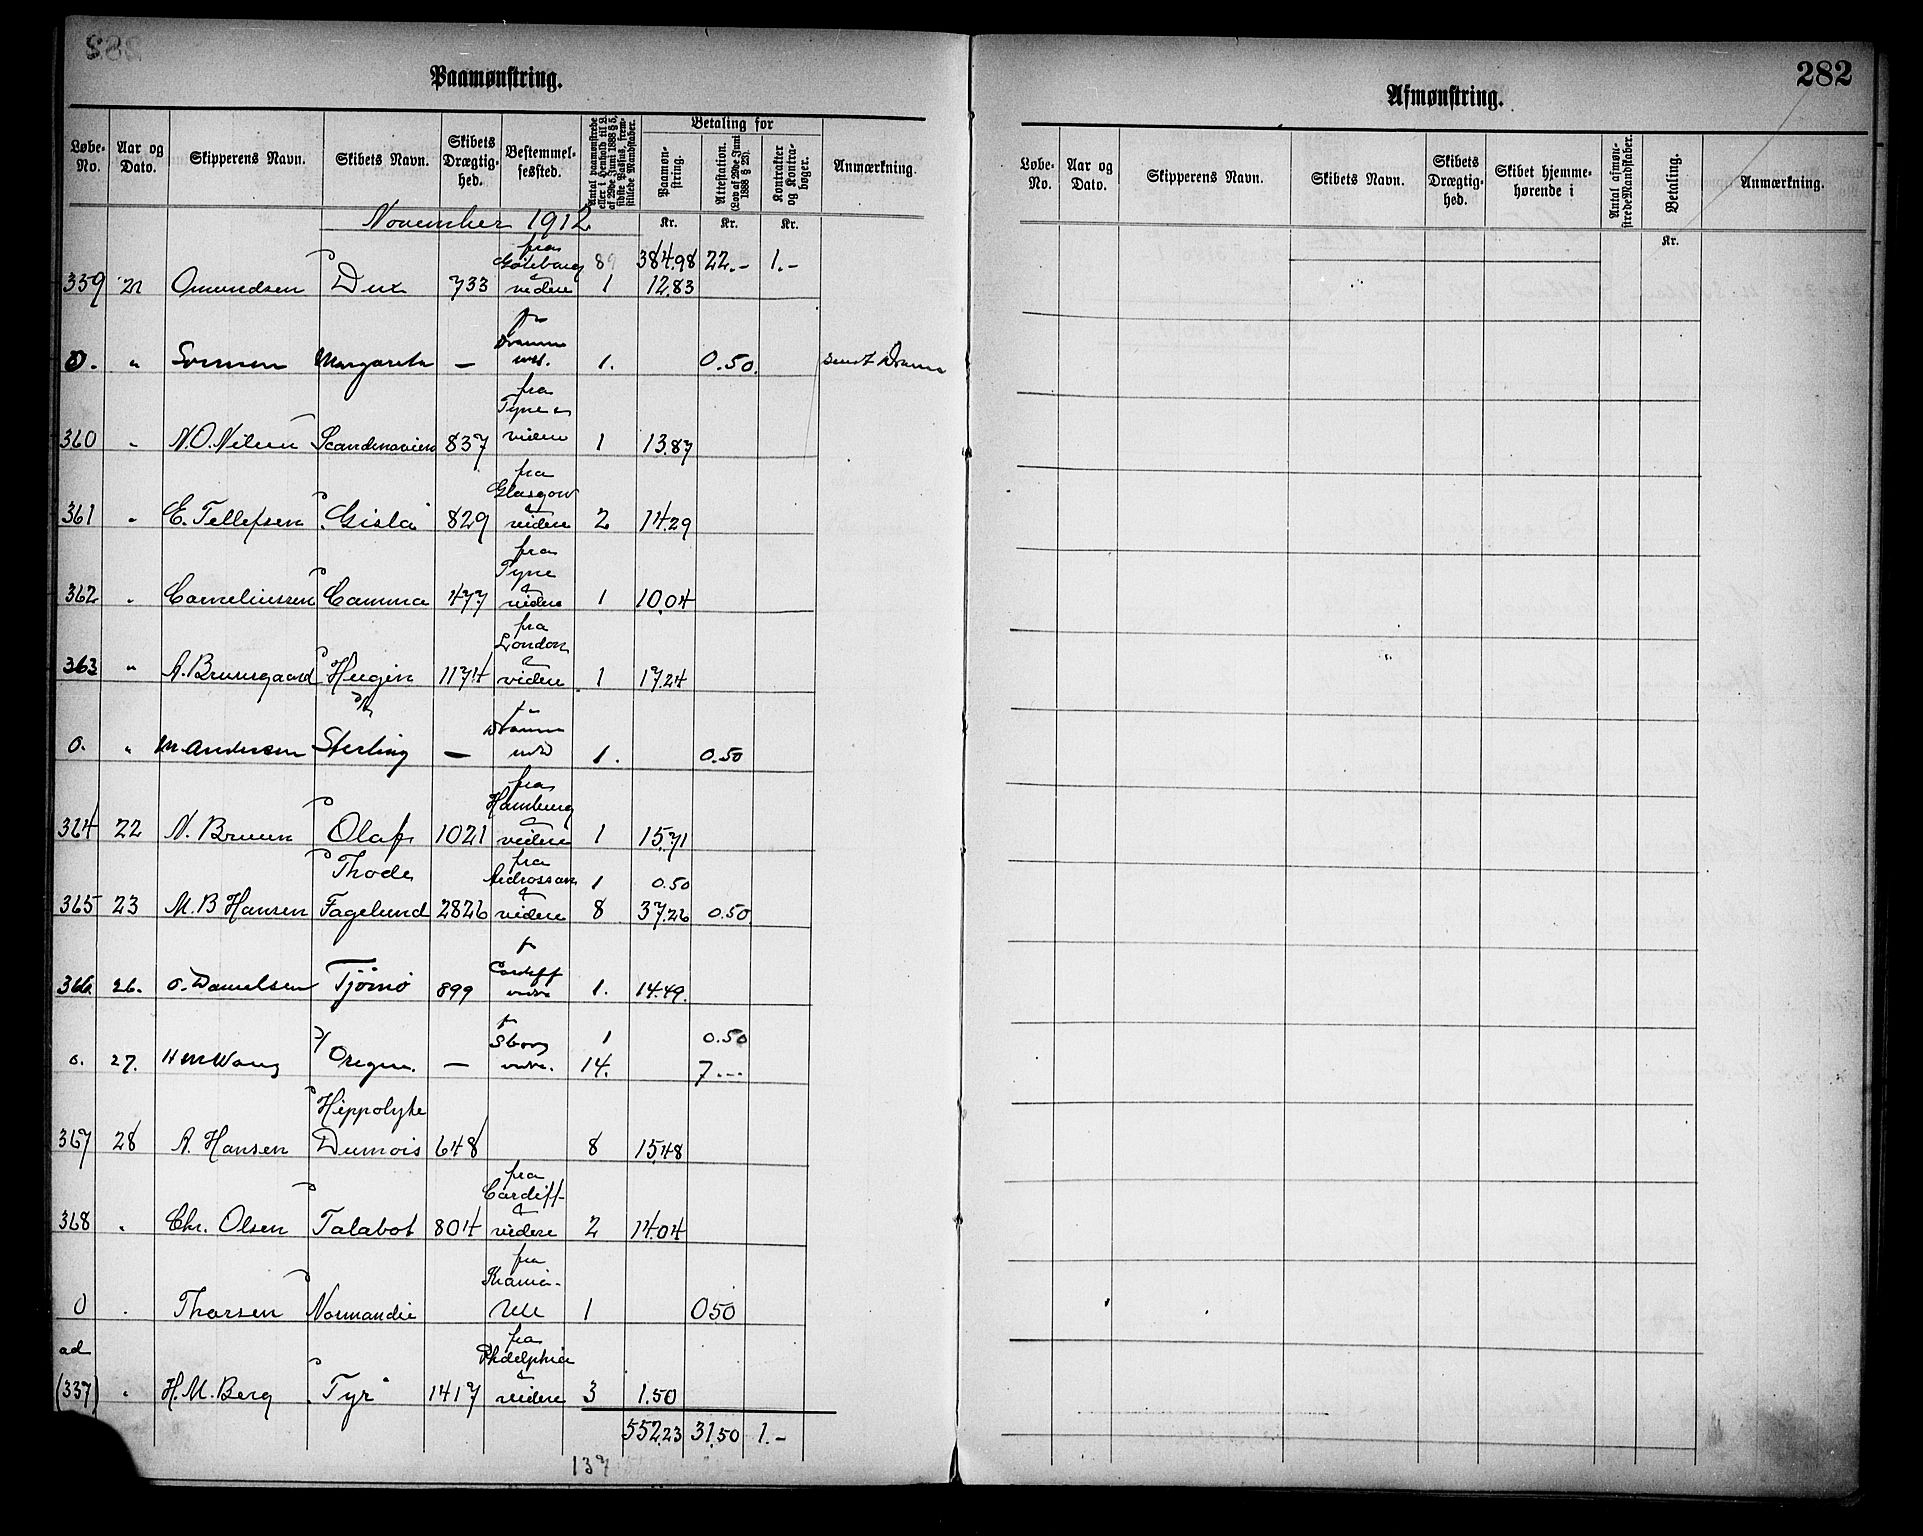 282
Paamønstring.
Løbe-No.
Aar og Dato.
Skipperens Navn.
Skibets Navn.
Skibets Drægtig-hed.
Bestemmel-sessted.
Antal paamønstrede eller i Henhold til L. af 29de Juni 1888 § 5, sidste Passus, frem-stillede Mandskaber.
Betaling for
Paamøn-string.
Attestation. (Lov af 29de Juni 1888 § 23).
Kontrakter og Kontra-bøger.
Anmærkning.
November 1912
Kr. Kr. Kr.
fra
Göteborg 89 384.98 22.- 1.-
&
359 21 Omundsen Dux 733 videre 1 12.83
fr
0. " Margareta — 1. 0.50. sendt
fra
Tyne &
360 " N.O. Nilsen Scandinavien 837 videre 1 13.87
fra
Glasgow
&
361 " E. Tellefsen "Gisla" 829 videre 2 14.29
fra
Tyne
&
362 " Corneliussen Camma 477 videre 1 10.04
fra
London
&
363 " A. Bruusgaard Hugin 1174 videre 1 17.24
0. " M. Andersen Sterling — 1. 0.50
fra
Hamburg
&
364 22 N. Bruun Olaf 1021 videre 1 15.71
fra
Thode Ardrossan 1 0.50
&
365 23 M.B Hansen Fagelund 2826 videre 8 37.26 0.50
f
Cardiff
366. 26. O. Danielsen Tjømø 899 1. 14.49.
f
1 0.50
0. 27. H M Wang — 14. 7.--
Hippolyte
367 28 A. Hansen Dumois 648 8 15.48
fra
Cardiff
&
368 " Chr. Olsen Talabot 804 videre 2 14.04
fra
Krania-
0 " Thorsen Normandie 1 0.50
fra
ad Phdelphia
&
(337) " H.M. Berg "Tyr" 1417 videre 3 1.50
552.23 31.50 1.-
137
282
Afmønstring.
Løbe-No.
Aar og Dato.
Skipperens Navn.
Skibets Navn.
Skibets Drægtig-hed.
Skibet hjemme-hørende i
Antal afmøn-strede Mandskaber.
Betaling.
Anmærkning.
Kr.